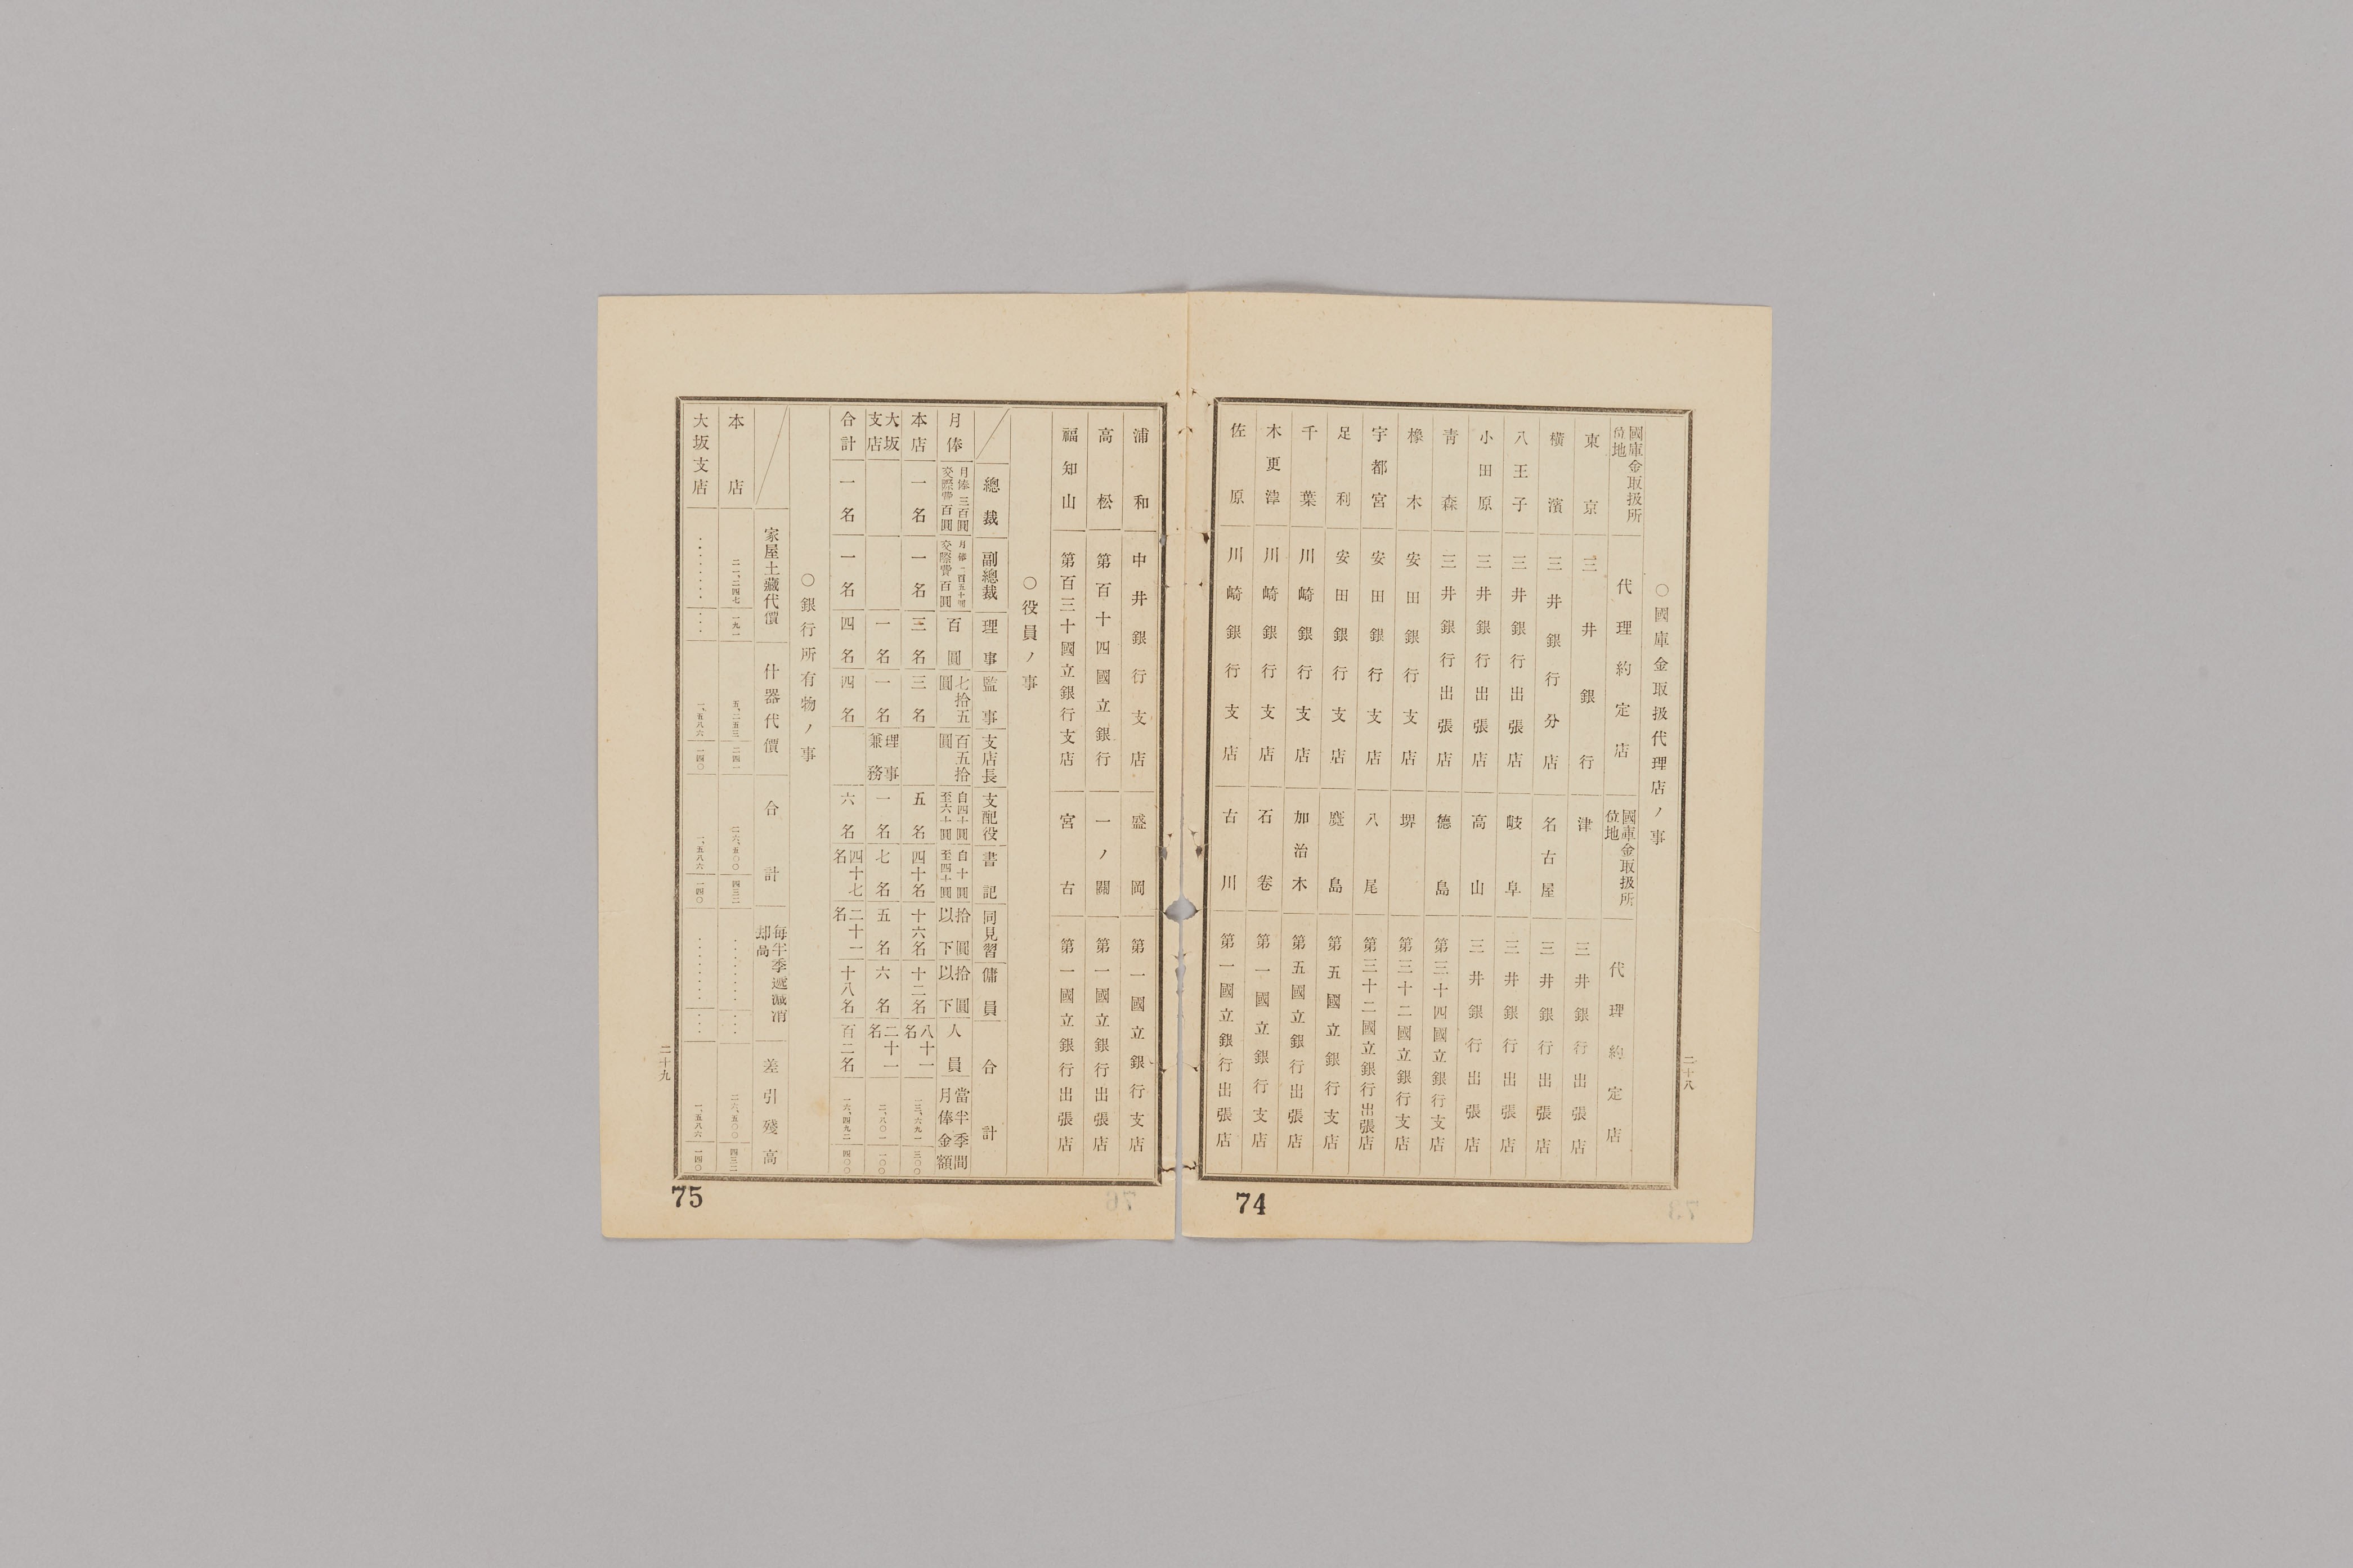 ○國庫金取扱代理店ノ事
國庫金取扱所位地　代理約定店　國庫金取扱所位地　代理約定店
東京　三井銀行　津　三井銀行出張店
横濱　三井銀行分店　名古屋　三井銀行出張店
八王子　三井銀行出張店　岐阜　三井銀行出張店
小田原　三井銀行出張店　高山　三井銀行出張店
青森　三井銀行出張店　德島　第三十四國立銀行支店
橡木　安田銀行支店　堺　第三十二國立銀行支店
宇都宮　安田銀行支店　八尾　第三十二國立銀行出張店
足利　安田銀行支店　島　第五國立銀行支店
千葉　川崎銀行支店　加治木　第五國立銀行出張店
木更津　川崎銀行支店　石卷　第一國立銀行支店
佐原　川崎銀行支店　古川　第一國立銀行出張店
二十八
74
浦和　中井銀行支店　盛岡　第一國立銀行支店
高松　第百十四國立銀行　一ノ關　第一國立銀行出張店
福知山　第百三十國立銀行支店　宮古　第一國立銀行出張店
○役員ノ事
總裁　副總裁　理事　監事　支店長　支配役　書記　同見習　傭員　合計
月俸　月俸三百圓交際費百圓　月俸二百五十圓交際費百圓　百圓　七拾五圓　百五拾圓　自四十圓至六十圓　自十圓至四十圓　拾圓以下　拾圓以下　人員　當半季間月俸金額
本店　一名　一名　三名　三名　五名　四十名　十六名　十二名　八十一名　一三、六九一　三〇〇
大坂支店　一名　一名　理事兼務　一名　七名　五名　六名　二十一名　二、八〇一　一〇〇
合計　一名　一名　四名　四名　六名　四十七名　二十一名　十八名　百二名　一六、四九二　四〇〇
○銀行所有物ノ事
家屋土藏代價　什器代價　合計　每半季遞減消却高　差引殘高
本店　二一、二四七　一九一　五、二五三　二四一　二六、五〇〇　四三二　………　…　二六、五〇〇　四三二
大坂支店　………　…　一、五八六　一四〇　一、五八六　一四〇　………　…　一、五八六　一四〇
二十九
75